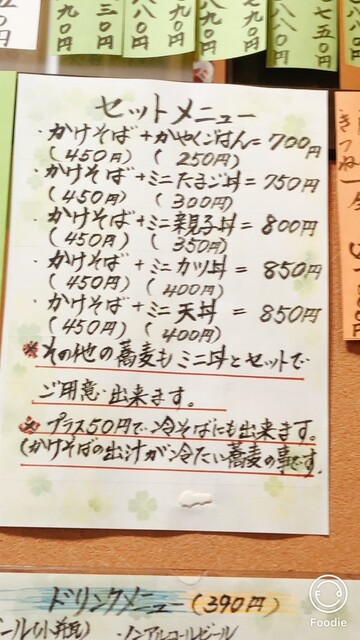 ５０円
３０円
９０円
９０円
８０円
７５０円
セットメニュー
・かけそば+かやくごはん=700円
(450円) (250円)
・かけそば+ミニたまご丼=750円
(450円) (300円)
・かけそば+ミニ親子丼=800円
(450円) (350円)
・かけそば+ミニカツ丼=850円
(450円) (400円)
・かけそば+ミニ天丼=850円
(450円) (400円)
※その他の蕎麦もミニ丼とセットで
ご用意出来ます。
※プラス50円で冷そばにも出来ます。
(かけそばの出汁が冷たい蕎麦の事です。
きつね
ドリンクメニュー(390円)
ビール(小瓶) ・ノンアルコールビール
Foodie